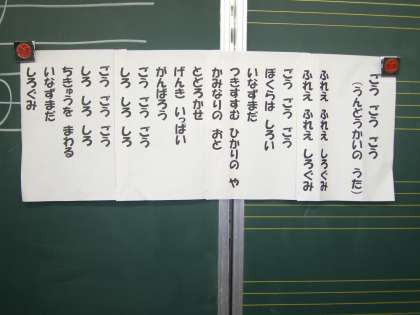 ごう ごう ごう
(うんどうかいの うた)
ふれえ ふれえ しろぐみ
ふれえ ふれえ しろぐみ
ごう ごう ごう
ぼくらは しろい
いなずまだ
つきすすむ ひかりの や
かみなりの おと
とどろかせ
げんき いっぱい
がんばろう
ごう ごう ごう
しろ しろ しろ
ごう ごう ごう
しろ しろ しろ
ちきゅうを まわる
いなずまだ
しろぐみ